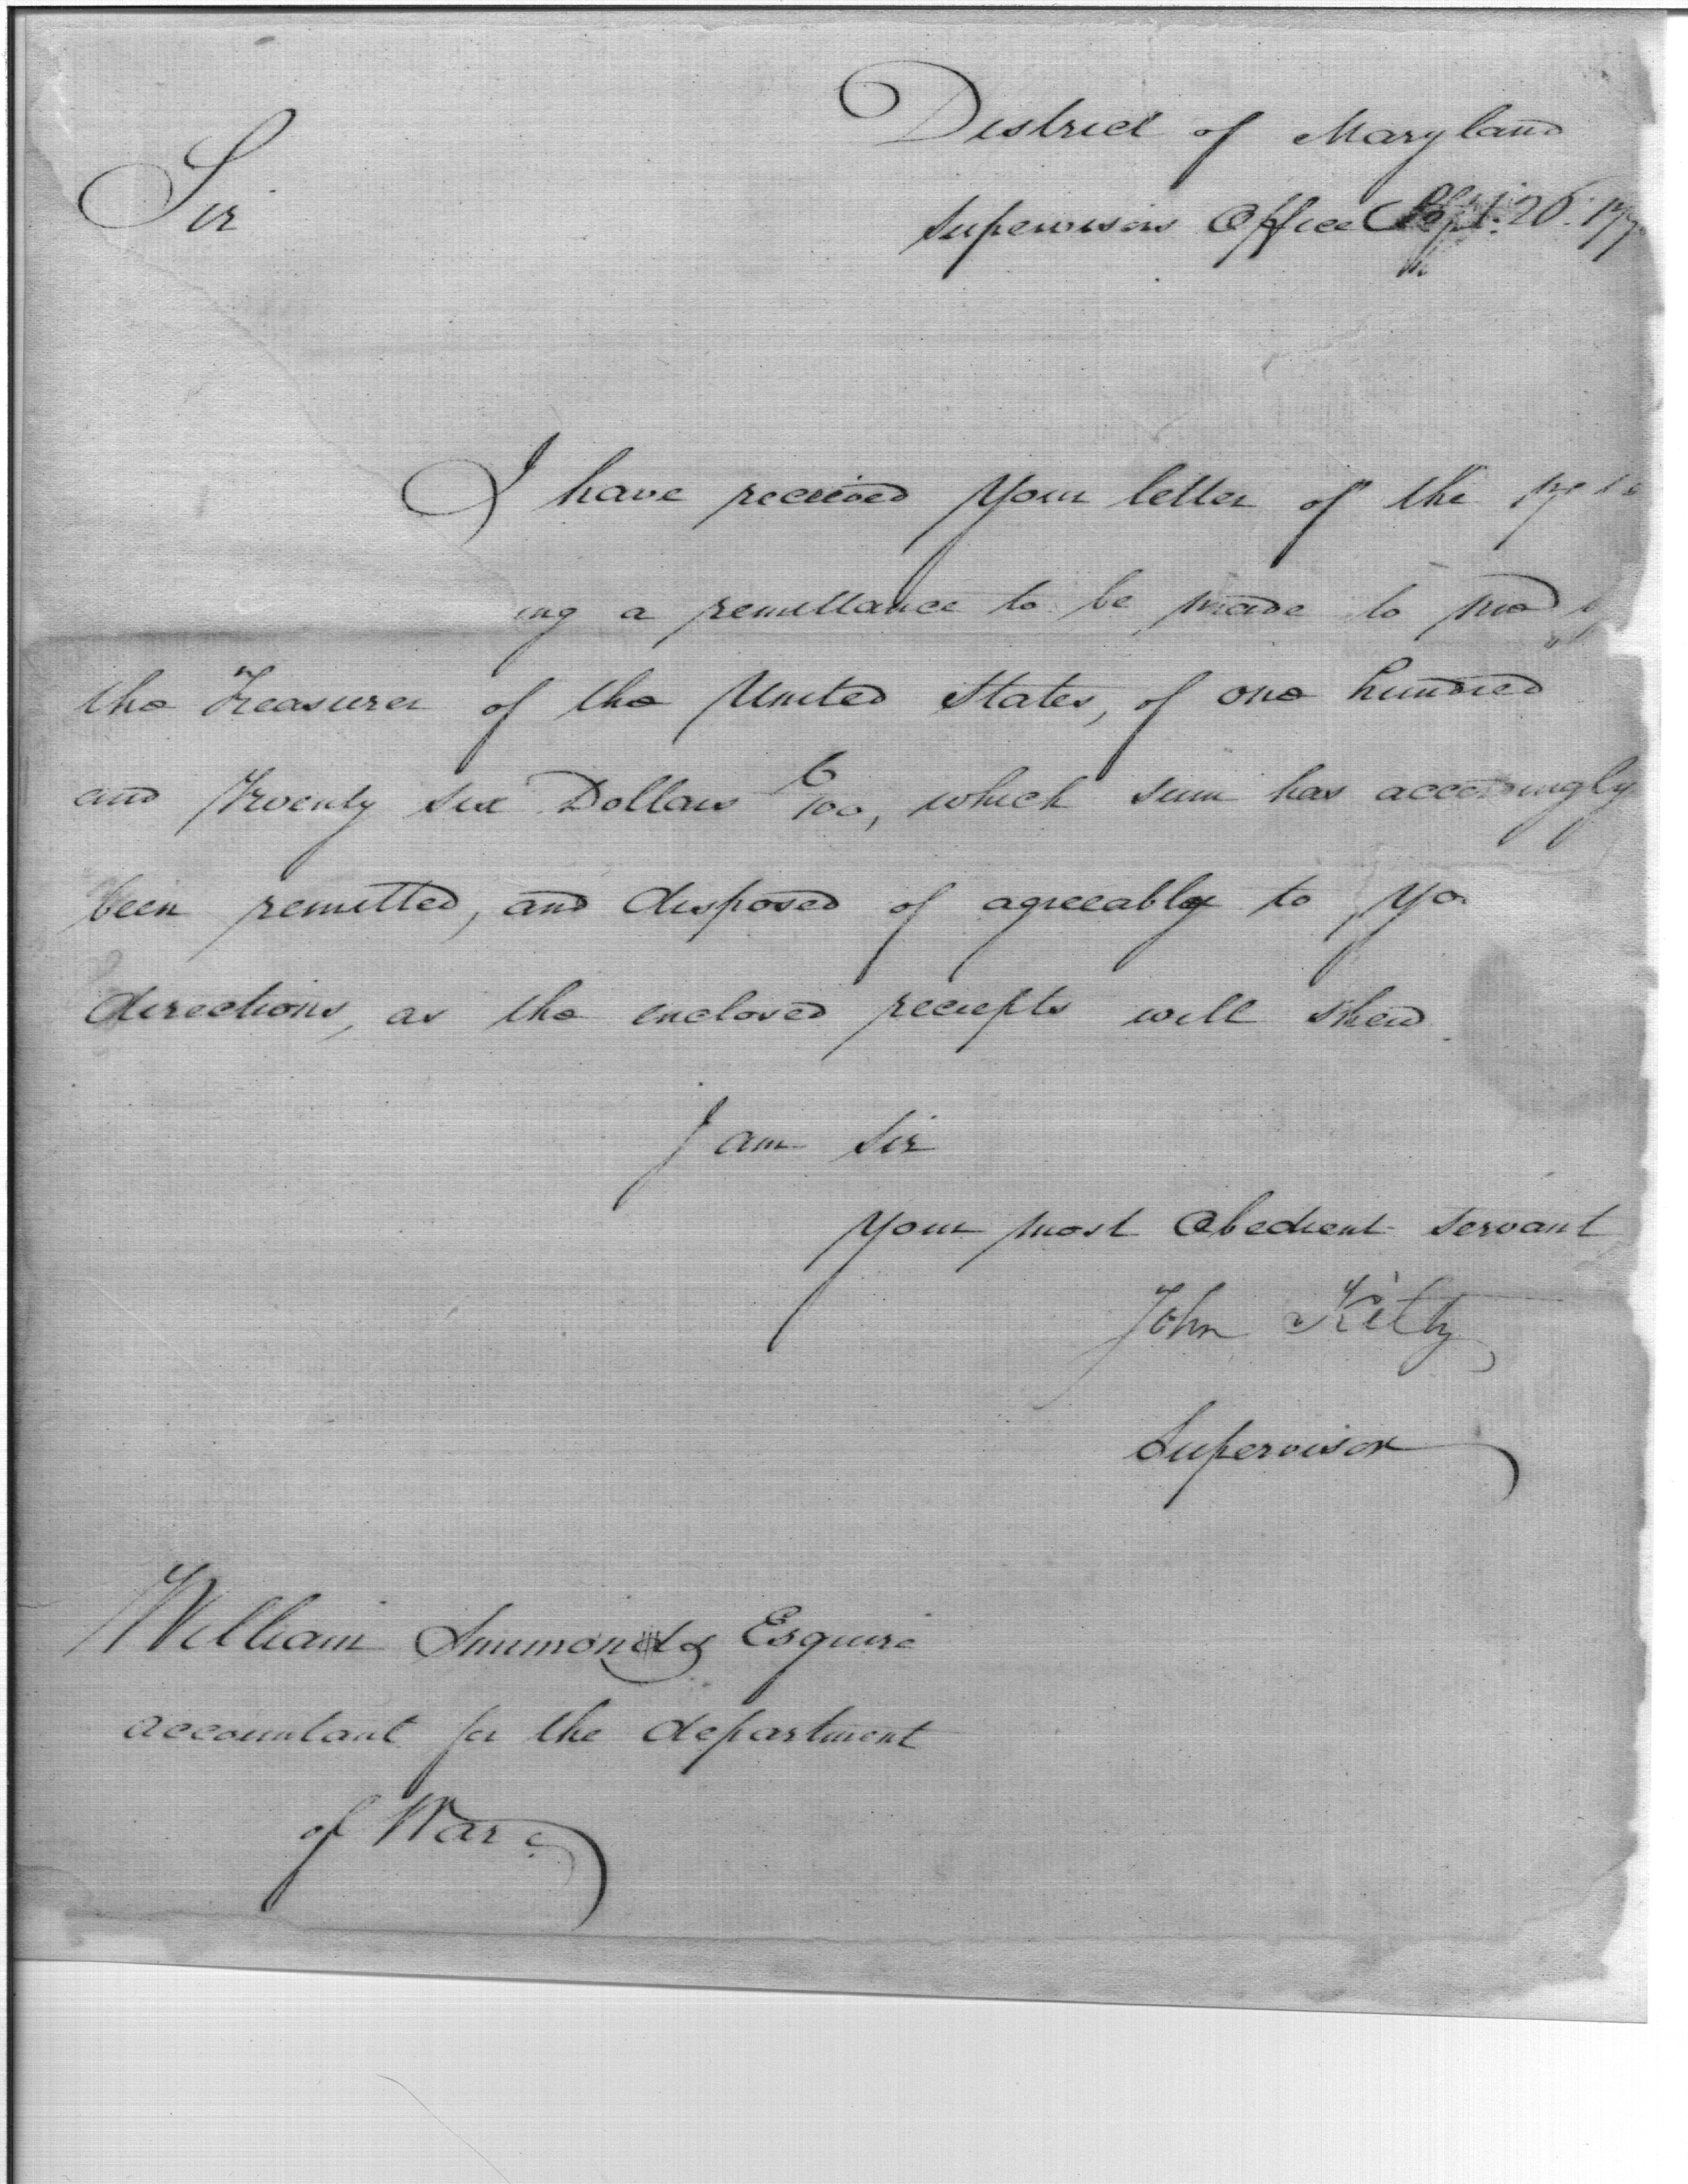 District of Maryland
Sir
Supervisors Office Sept. 26. 179
I have received your letter of the
ing a remittance to be made to me
the Treasurer of the United States, of one hundred
and twenty six Dollars 6/100, which sum has accordingly
been remitted, and disposed of agreeably to yo
directions, as the enclosed receipts will shew.
I am Sir
Your most Obedient servant
John Kilty
Supervisor
William Simmonds Esquire
accountant for the department
of War